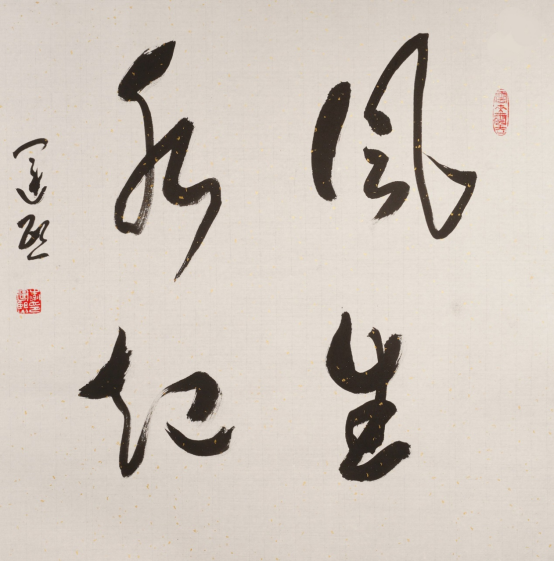 風生
水起